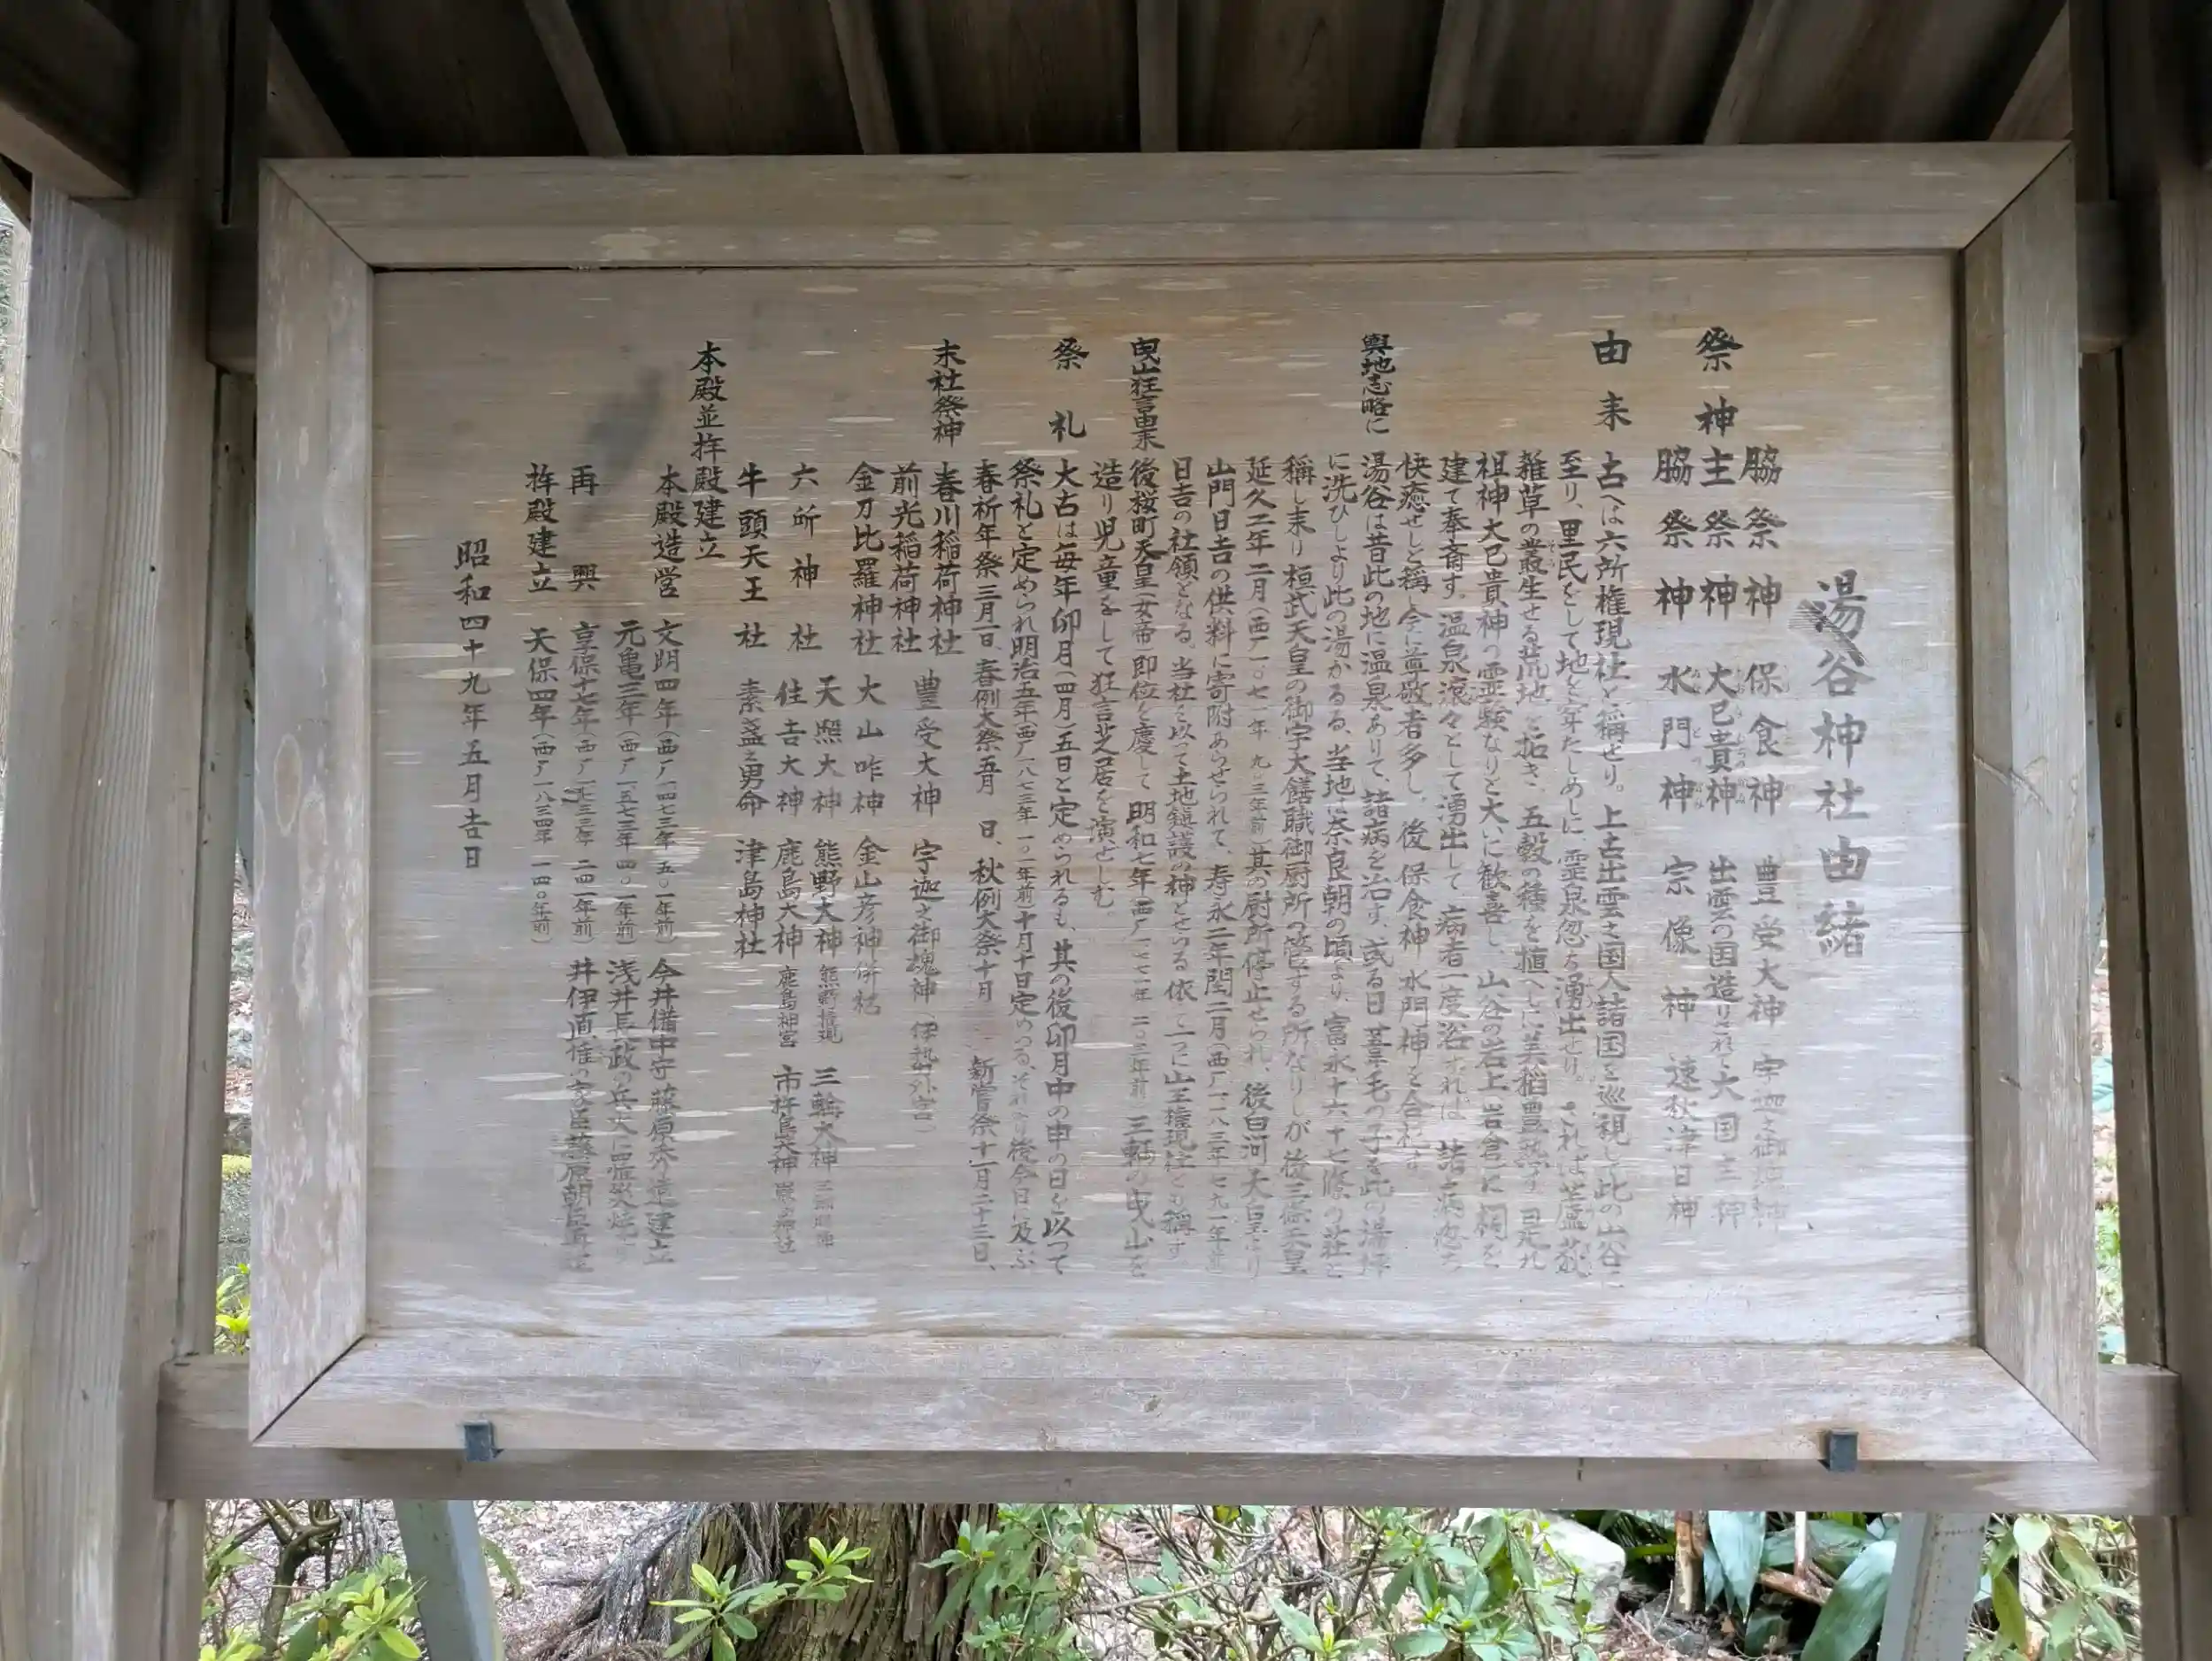 湯谷神社由緒
祭神
脇祭神 保食神 豊受大神 宇迦之御魂神
主祭神 大己貴神 出雲の国造りされた大国主神
脇祭神 水門神 宗像神 速秋津日神
由来 古へは六所権現社と稱せり。上古出雲之国人諸国を巡視して此の山谷に
至り、里民をして地を穿たしめしに、霊泉忽ち湧出せり。されば芦蘆荻
雑草の叢生せる荒地を拓き、五穀の種を植へしに美稻豊熟す 是れ
祖神大己貴神の霊験なりと大いに歓喜し、山谷の岩上(岩倉)に祠を
建て奉斎す。温泉滾々として湧出して 病者一度浴すれば 諸病忽ち
快癒せしと稱し今に尊敬者多し。後 保食神 水門神を合祀す。
輿地志略に 湯谷は昔此の地に温泉ありて、諸病を治す、或る日葦毛の子を此の湯坪
に洗ひしより此の湯かるる、当地は奈良朝の頃より、富永十六、十七條の荘と
稱し来り桓武天皇の御宇大膳職御厨所の管する所なりしが後三條天皇
延久二年二月(西
一〇七一年 九〇三年前)其の厨所停止せられ、後白河天皇より
山門日吉の供料に寄附あらせられて、寿永二年閏二月(西
一一八三年 七九一年前
日吉の社領となる。当社を以って土地鎮護の神とせらる 依って一つに山王権現社とも稱す。
曳山狂言由来 後桜町天皇(女帝)即位を慶して 明和七年(西
一七七一年 二〇三年前 三輌の曳山を
造り児童をして狂言芝居を演せしむ。
祭礼 大古は毎年卯月(四月)五日と定められるも、其の後卯月中の申の日を以って
祭礼と定められ明治五年(西
一八七三年 一〇一年前)十月十日定めらる、それより後今日に及ぶ
春祈年祭三月一日、春例大祭五月 日、秋例大祭十月 新嘗祭十一月二十三日、
末社祭神 春川稲荷神社 豊受大神 宇迦之御魂神(伊勢外宮)
前光稲荷神社
金刀比羅神社 大山咋神 金山彦神併祀
六所神社 天照大神 熊野大神 熊野権現 三輪大神 三輪明神
住吉大神 鹿島大神 鹿島神宮 市杵島大神 厳島神社
牛頭天王社 素盞之男命 津島神社
本殿並拝殿建立
本殿造営 文明四年(西
一四七三年 五〇一年前) 今井備中守藤原秀 造建立
元亀三年(西
一五七三年 四〇一年前) 浅井長政の兵火に罹災焼
再興 享保十七年(西
一七三三年 二四一年前) 井伊直惟の家臣藤原朝臣
拝殿建立 天保四年(西
一八三四年 一四〇年前)
昭和四十九年五月吉日